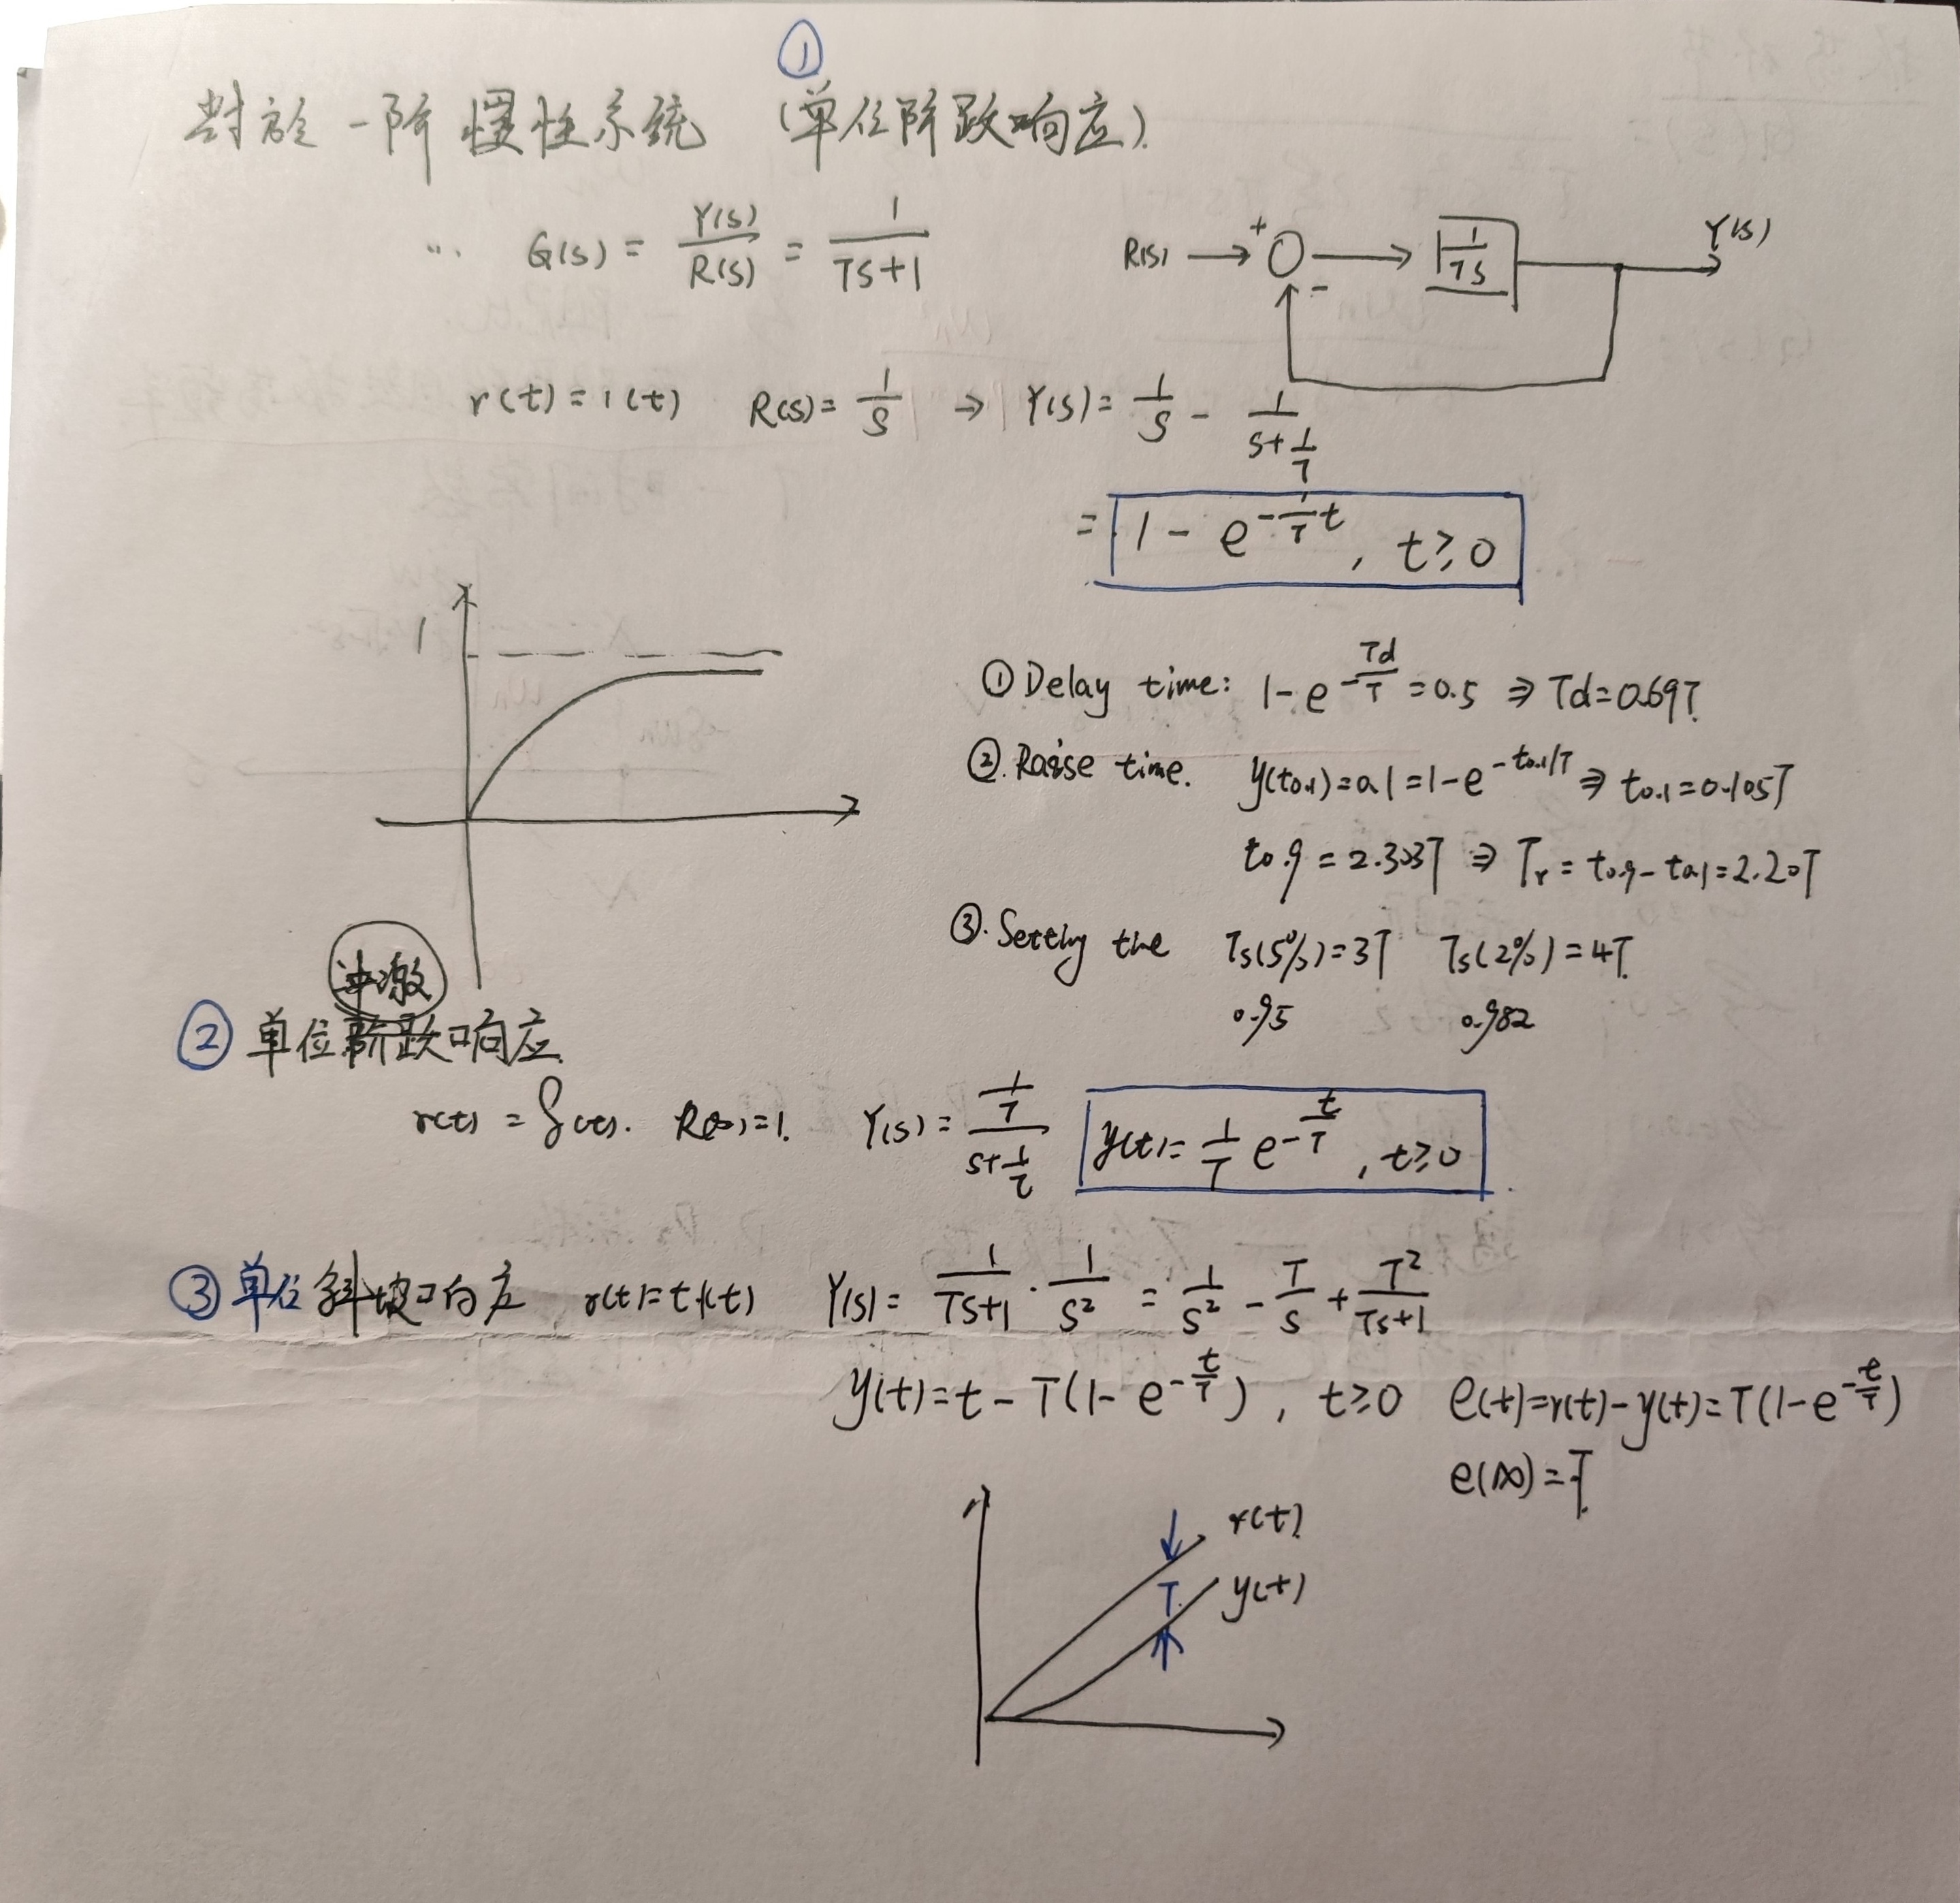 ①
對於一阶惯性系统 (单位阶跃响应).
∵ G(s) = Y(s)/R(s) = 1/(Ts+1)
R(s) + - 1/(Ts) Y(s)
r(t)=1(t) R(s)=1/s ⇒ Y(s)=1/s - 1/(s+1/T)
= 1-e^(-(1/T)t), t≥0
1
① Delay time: 1-e^(-Td/T)=0.5 ⇒ Td=0.69T.
②. Raise time. y(t0.1)=0.1=1-e^(-t0.1/T) ⇒ t0.1=0.105T
t0.9=2.303T ⇒ Tr=t0.9-t0.1=2.20T
③. Setting the Ts(5%)=3T Ts(2%)=4T.
0.95 0.982
冲激
② 单位阶跃响应.
r(t)=δ(t). R(s)=1. Y(s)=(1/T)/(s+1/τ) y(t)=(1/T)e^(-t/T), t≥0
③ 单位斜坡响应 r(t)=t·1(t) Y(s)=1/(Ts+1)·1/s²=1/s²-T/s+T²/(Ts+1)
y(t)=t-T(1-e^(-t/T)), t≥0 e(t)=r(t)-y(t)=T(1-e^(-t/T))
e(∞)=T.
r(t)
T
y(t)